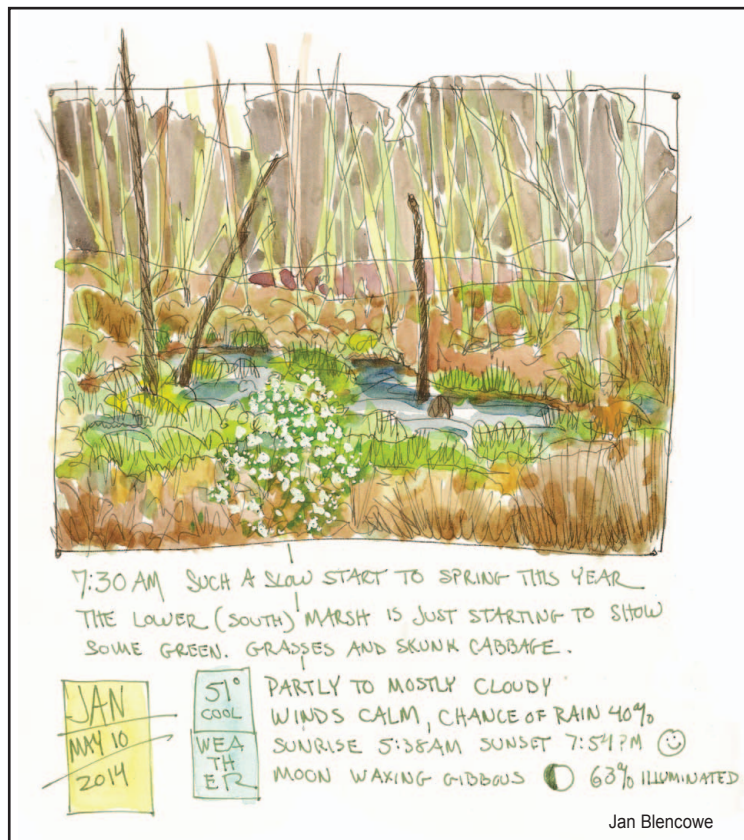 7:30 AM SUCH A SLOW START TO SPRING THIS YEAR
THE LOWER (SOUTH) MARSH IS JUST STARTING TO SHOW
SOME GREEN. GRASSES AND SKUNK CABBAGE.
JAN
MAY 10
2014
51°
COOL
WEA
TH
ER
PARTLY TO MOSTLY CLOUDY
WINDS CALM, CHANCE OF RAIN 40%
SUNRISE 5:38AM SUNSET 7:57PM
MOON WAXING GIBBOUS 63% ILLUMINATED
Jan Blencowe